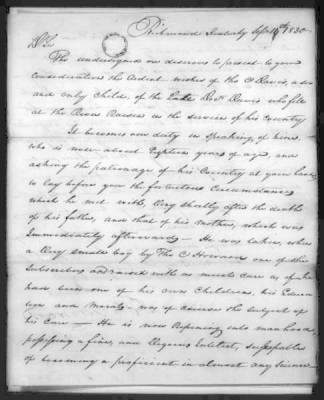 Richmond Kentucky Sept 18th 1830
Dr Sir
The undersigned are desirous to present to your
consideration the Ardent wishes of Tho C Davis, a son
and only child, of the Late Benj Davis who fell
at the River Raisin in the service of his Country
It becomes our duty in speaking of him,
who is now about Eighteen years of age, and
asking the patronage of his Country at your hands
to lay before you the fortuitous circumstances
which he met with, Very shortly after the death
of his father, and that of his Mother, which was
Immediately afterwards — He was taken, when
a Very small boy by Tho C Howard one of the
Subscribers and raised with as much care as if he
had been one of his own Children, his Educa
tion and Morals was of course the subject of
his Care — He is now Ripening into manhood,
possessing a fine, and Vigorous Intellect, susceptable
of becoming a proficient in almost any Science